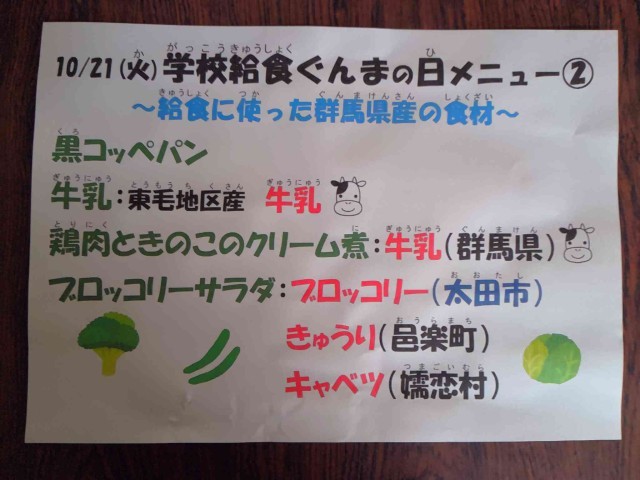 10/21(火)学校給食ぐんまの日メニュー②
～給食に使った群馬県産の食材～
黒コッペパン
牛乳：東毛地区産 牛乳
鶏肉ときのこのクリーム煮：牛乳(群馬県)
ブロッコリーサラダ：ブロッコリー(太田市)
きゅうり(邑楽町)
キャベツ(嬬恋村)